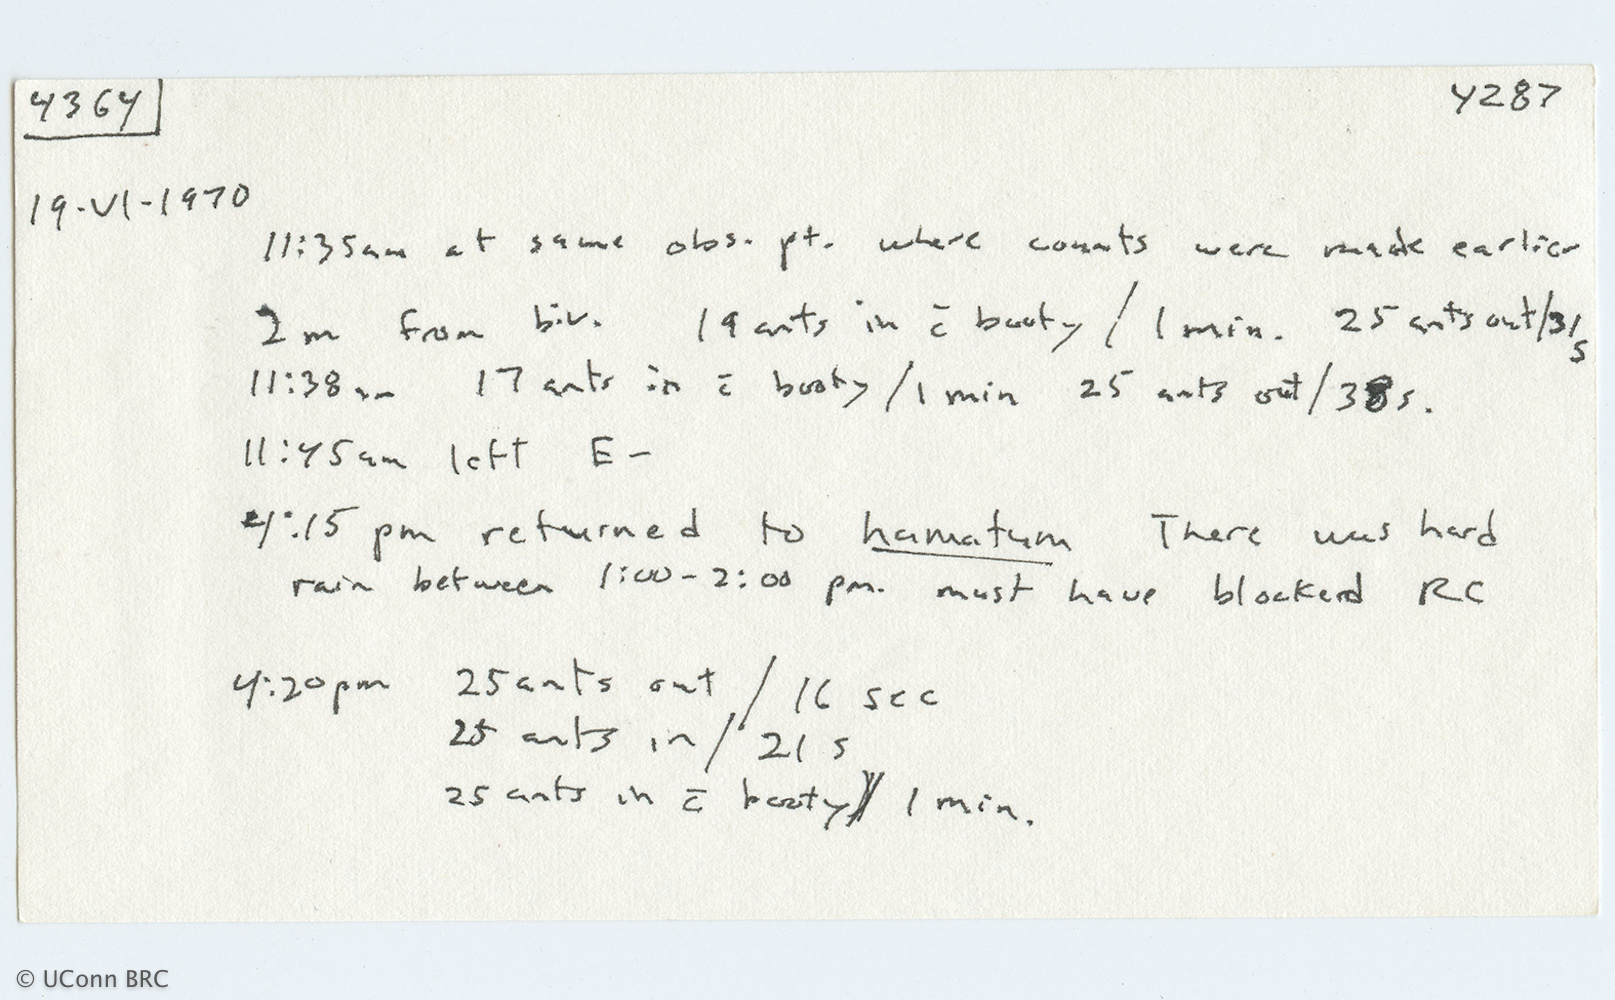 4364
4287
19-VI-1970
11:35am at same obs. pt. where counts were made earlier
2m from biv. 19 ants in c̄ booty / 1 min. 25 ants out/31s
11:38am 17 ants in c̄ booty / 1 min 25 ants out/38s.
11:45am left E-
4:15 pm returned to hamatum There was hard
rain between 1:00-2:00 pm. must have blocked RC
4:20pm 25 ants out / 16 sec
25 ants in / 21 s
25 ants in c̄ booty / 1 min.
© UConn BRC